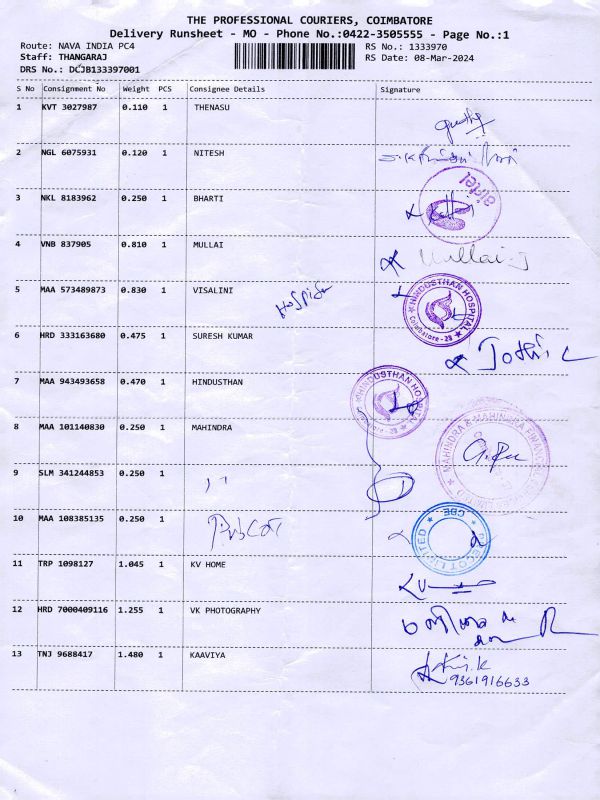 THE PROFESSIONAL COURIERS, COIMBATORE
Delivery Runsheet - MO - Phone No.:0422-3505555 - Page No.:1
Route: NAVA INDIA PC4 RS No.: 1333970
Staff: THANGARAJ RS Date: 08-Mar-2024
DRS No.: DCJB133397001
S No Consignment No Weight PCS Consignee Details Signature
1 KVT 3027987 0.110 1 THENASU
2 NGL 6075931 0.120 1 NITESH
airtel
3 NKL 8183962 0.250 1 BHARTI
4 VNB 837905 0.810 1 MULLAI Mullai-J
5 MAA 573489873 0.830 1 VISALINI Hospital HINDUSTHAN HOSPITAL Coimbatore - 28
6 HRD 333163680 0.475 1 SURESH KUMAR Jothi
7 MAA 943493658 0.470 1 HINDUSTHAN HINDUSTHAN HOSPITAL Coimbatore - 28
8 MAA 101140830 0.250 1 MAHINDRA MAHINDRA & MAHINDRA FINANCIAL
9 SLM 341244853 0.250 1 ,,
10 MAA 108385135 0.250 1 LIMITED CBE
11 TRP 1098127 1.045 1 KV HOME
12 HRD 7000409116 1.255 1 VK PHOTOGRAPHY
13 TNJ 9688417 1.480 1 KAAVIYA
9361916633